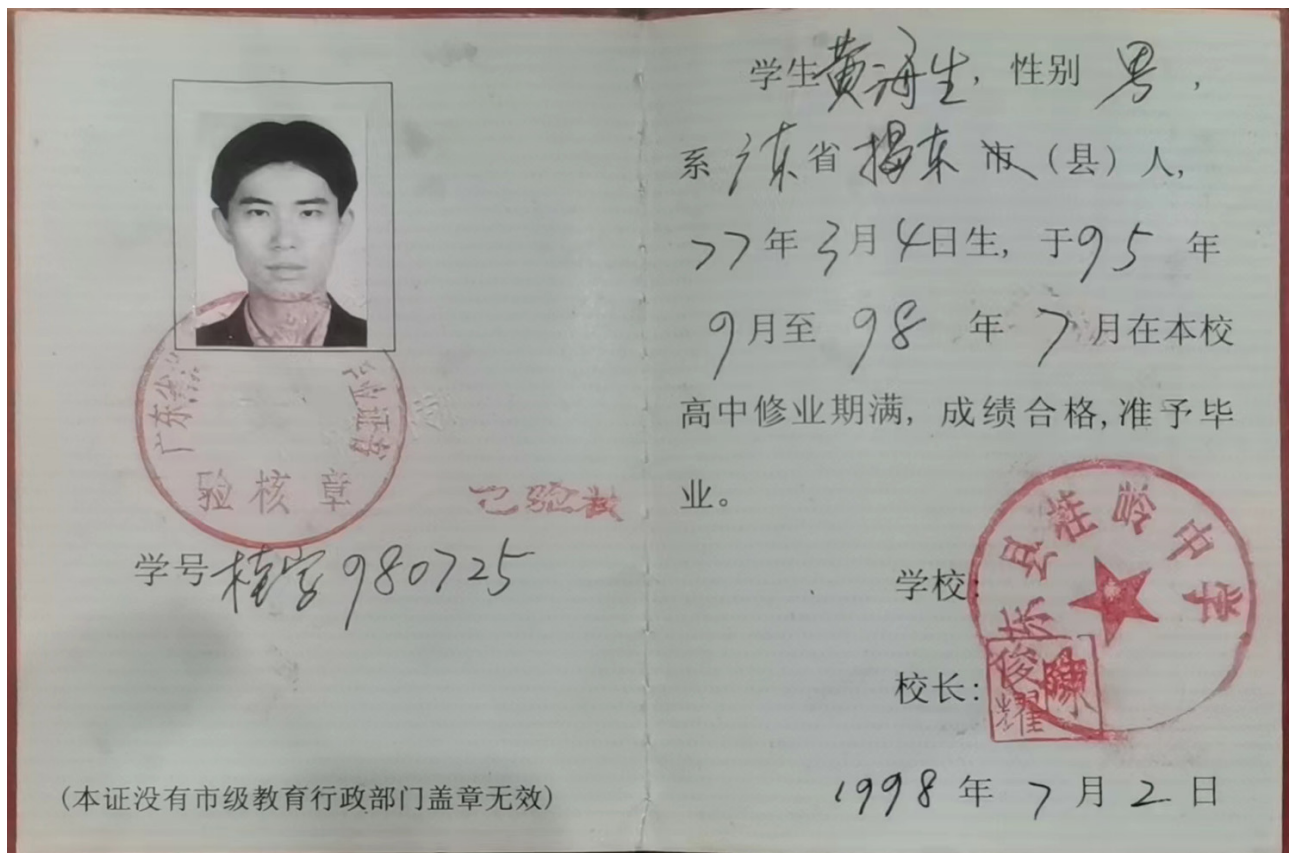 广东省
业证书
验核章
已验核
学号桂字980725
(本证没有市级教育行政部门盖章无效)
学生黄海生,性别 男,
系 广东省 揭东 市(县)人,
77年3月4日生,于95 年
9月至 98 年 7月在本校
高中修业期满,成绩合格,准予毕
业。
东县桂岭中学
学校:
校长:
陈俊耀
1998 年 7 月 2 日